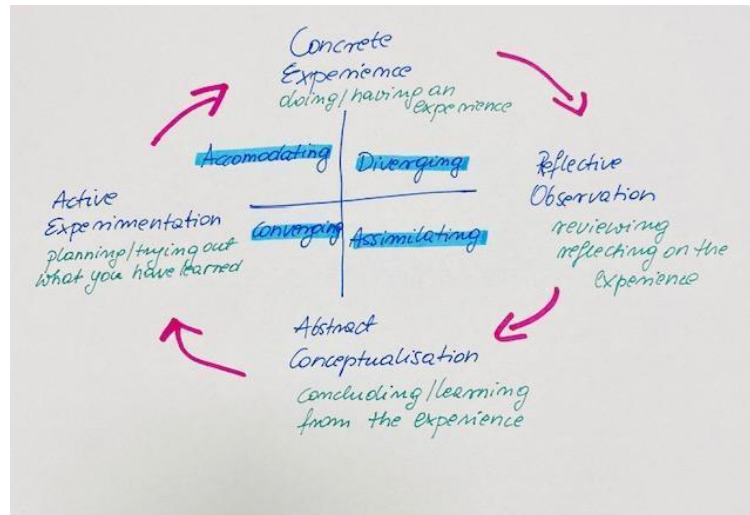 Concrete
Experience
doing/having an
experience
Accomodating
Diverging
Reflective
Observation
reviewing
reflecting on the
experience
Active
Experimentation
planning/trying out
what you have learned
Converging
Assimilating
Abstract
Conceptualisation
concluding/learning
from the experience